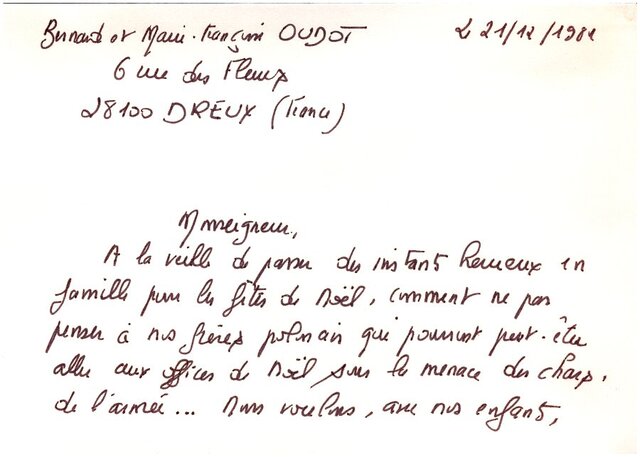 Bernard et Marie-Françoise OUDOT
Le 21/12/1981
6 rue des Fleurs
28100 DREUX (France)
Monseigneur,
A la veille de passer des instants heureux en
famille pour les fêtes de Noël, comment ne pas
penser à nos frères polonais qui pourront peut-être
aller aux offices de Noël sous la menace des chars,
de l'armée... Nous voulons, avec nos enfants,